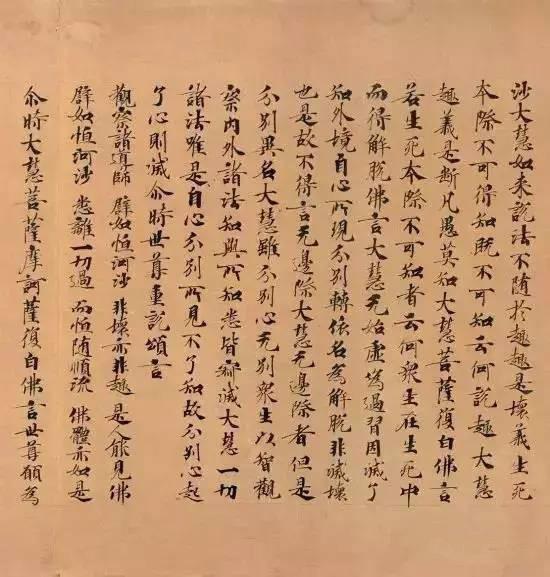 沙大慧如来說法不随於趣趣是壞義生死
本際不可得知既不可知云何說趣大慧
趣義是斷凡愚莫知大慧菩薩復白佛言
若生死本際不可知者云何衆生在生死中
而得解脱佛言大慧无始虚偽過習因滅了
知外境自心所現分別轉依名為解脱非滅壞
也是故不得言无邊際大慧无邊際者但是
分別異名大慧離分別心无別衆生以智觀
察内外諸法知與所知悉皆寂滅大慧一切
諸法唯是自心分別所見不了知故分別心起
了心則滅尒時世尊重說頌言
觀察諸導師 譬如恒河沙 非壞亦非趣 是人能見佛
譬如恒河沙 悉離一切過 而恒随順流 佛體亦如是
尒時大慧菩薩摩訶薩復白佛言世尊願為